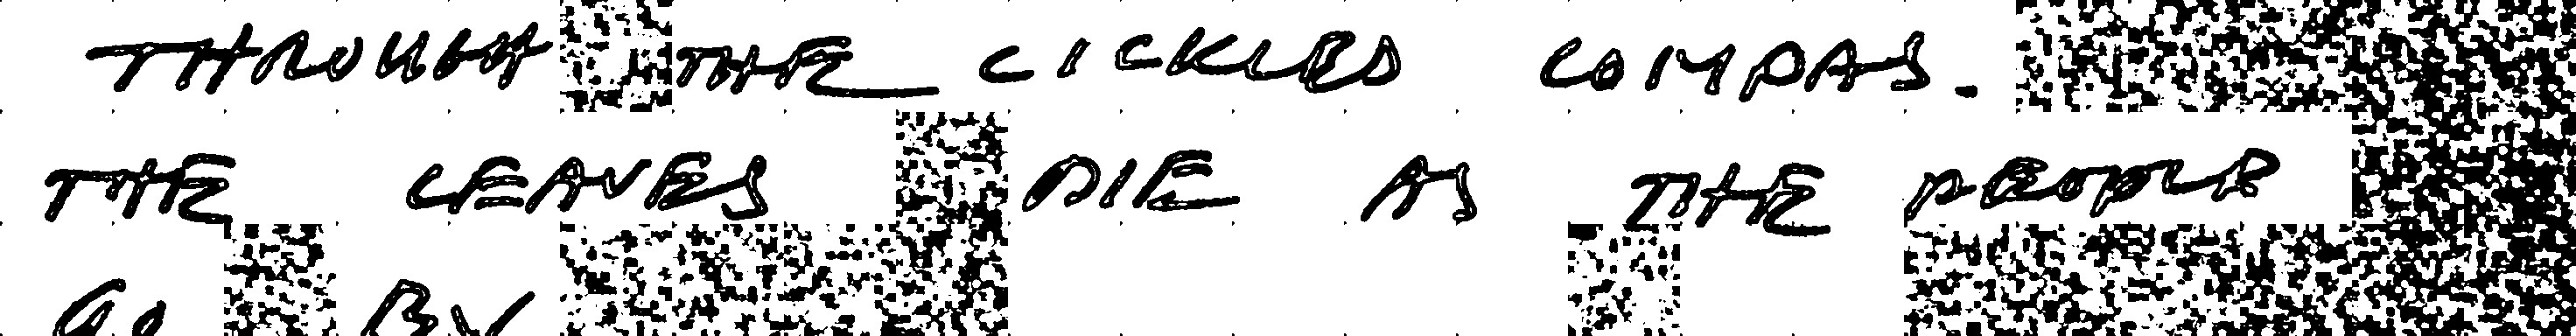 THROUGH THE CICKLED COMPAS.
THE LEAVES DIE AS THE PEOPLE
GO BY